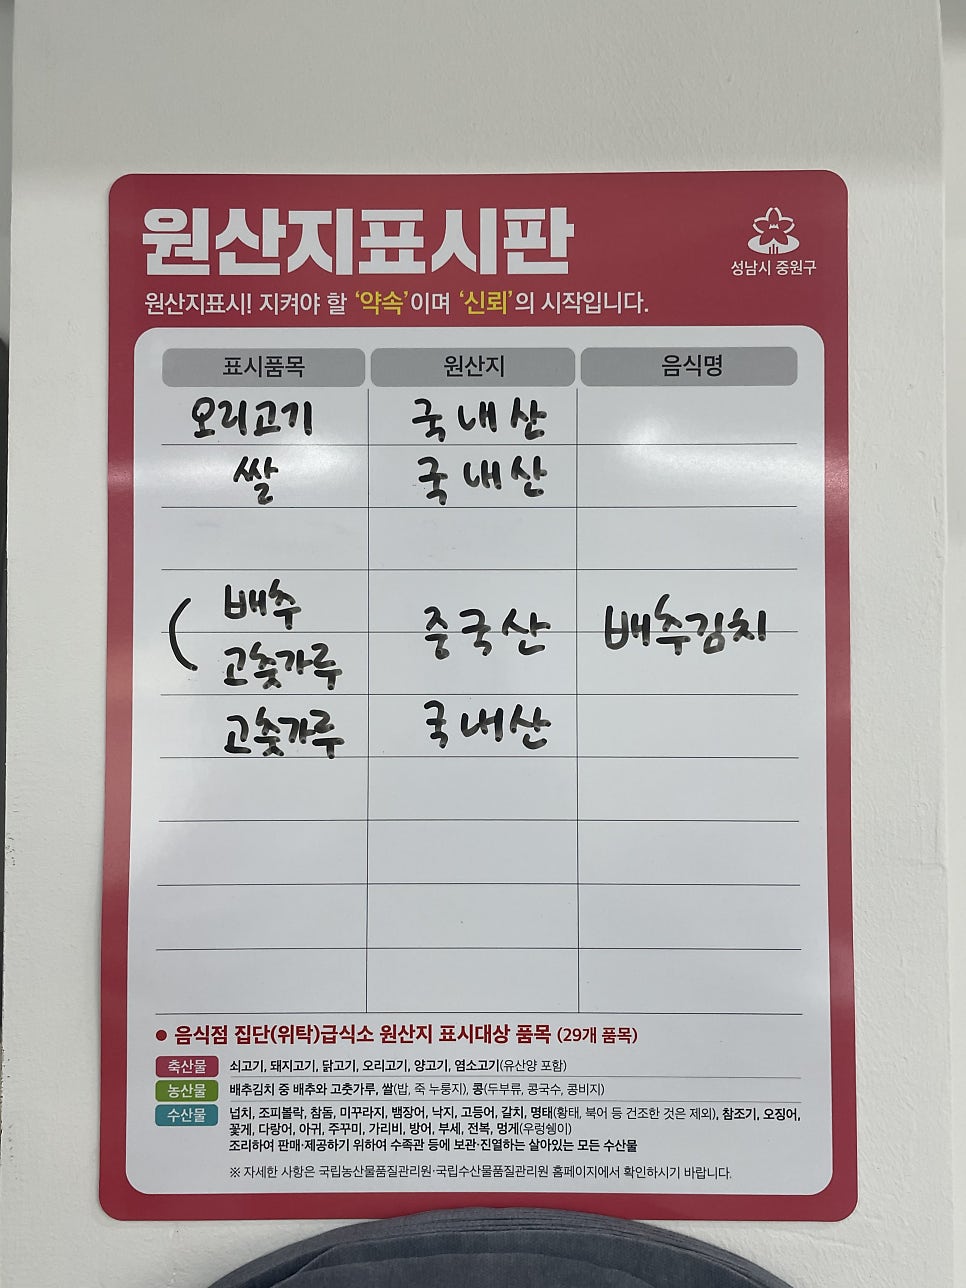 원산지표시판
성남시 중원구
원산지표시! 지켜야 할 ‘약속’이며 ‘신뢰’의 시작입니다.
표시품목 원산지 음식명
오리고기 국내산
쌀 국내산
배추
중국산 배추김치
고춧가루
고춧가루 국내산
• 음식점 집단(위탁)급식소 원산지 표시대상 품목 (29개 품목)
축산물 쇠고기, 돼지고기, 닭고기, 오리고기, 양고기, 염소고기(유산양 포함)
농산물 배추김치 중 배추와 고춧가루, 쌀(밥, 죽 누룽지), 콩(두부류, 콩국수, 콩비지)
수산물 넙치, 조피볼락, 참돔, 미꾸라지, 뱀장어, 낙지, 고등어, 갈치, 명태(황태, 북어 등 건조한 것은 제외), 참조기, 오징어,
꽃게, 다랑어, 아귀, 주꾸미, 가리비, 방어, 부세, 전복, 멍게(우렁쉥이)
조리하여 판매·제공하기 위하여 수족관 등에 보관·진열하는 살아있는 모든 수산물
※ 자세한 사항은 국립농산물품질관리원·국립수산물품질관리원 홈페이지에서 확인하시기 바랍니다.